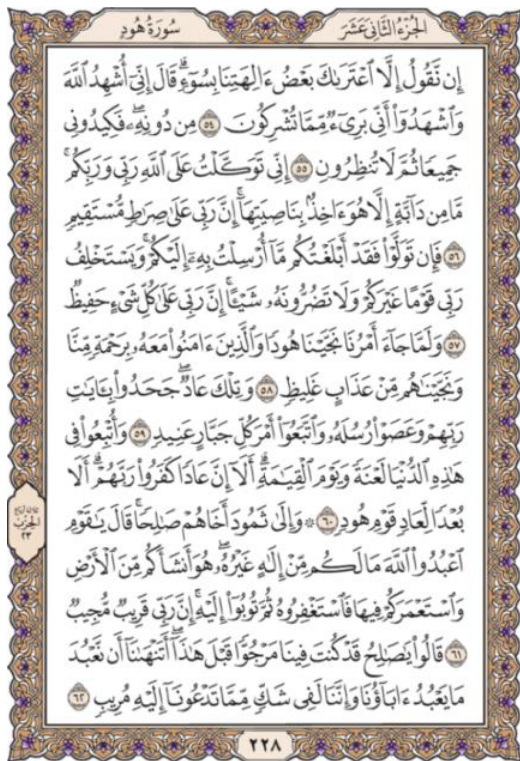 سُورَةُ هُودٍ
الجُزْءُ الثَّانِي عَشَرَ
إِن نَّقُولُ إِلَّا ٱعْتَرَىٰكَ بَعْضُ ءَالِهَتِنَا بِسُوٓءٍۗ قَالَ إِنِّىٓ أُشْهِدُ ٱللَّهَ
وَٱشْهَدُوٓا۟ أَنِّى بَرِىٓءٌ مِّمَّا تُشْرِكُونَ ٥٤ مِن دُونِهِۦۖ فَكِيدُونِى
جَمِيعًا ثُمَّ لَا تُنظِرُونِ ٥٥ إِنِّى تَوَكَّلْتُ عَلَى ٱللَّهِ رَبِّى وَرَبِّكُمۚ
مَّا مِن دَآبَّةٍ إِلَّا هُوَ ءَاخِذٌۢ بِنَاصِيَتِهَآۚ إِنَّ رَبِّى عَلَىٰ صِرَٰطٍ مُّسْتَقِيمٍ
٥٦ فَإِن تَوَلَّوْا۟ فَقَدْ أَبْلَغْتُكُم مَّآ أُرْسِلْتُ بِهِۦٓ إِلَيْكُمْۚ وَيَسْتَخْلِفُ
رَبِّى قَوْمًا غَيْرَكُمْ وَلَا تَضُرُّونَهُۥ شَيْـًٔاۚ إِنَّ رَبِّى عَلَىٰ كُلِّ شَىْءٍ حَفِيظٌ
٥٧ وَلَمَّا جَآءَ أَمْرُنَا نَجَّيْنَا هُودًا وَٱلَّذِينَ ءَامَنُوا۟ مَعَهُۥ بِرَحْمَةٍ مِّنَّا
وَنَجَّيْنَٰهُم مِّنْ عَذَابٍ غَلِيظٍ ٥٨ وَتِلْكَ عَادٌۖ جَحَدُوا۟ بِـَٔايَٰتِ
رَبِّهِمْ وَعَصَوْا۟ رُسُلَهُۥ وَٱتَّبَعُوٓا۟ أَمْرَ كُلِّ جَبَّارٍ عَنِيدٍ ٥٩ وَأُتْبِعُوا۟ فِى
هَٰذِهِ ٱلدُّنْيَا لَعْنَةً وَيَوْمَ ٱلْقِيَٰمَةِۗ أَلَآ إِنَّ عَادًا كَفَرُوا۟ رَبَّهُمْۗ أَلَا
بُعْدًا لِّعَادٍ قَوْمِ هُودٍ ٦٠ ۞ وَإِلَىٰ ثَمُودَ أَخَاهُمْ صَٰلِحًاۚ قَالَ يَٰقَوْمِ
ٱعْبُدُوا۟ ٱللَّهَ مَا لَكُم مِّنْ إِلَٰهٍ غَيْرُهُۥۖ هُوَ أَنشَأَكُم مِّنَ ٱلْأَرْضِ
وَٱسْتَعْمَرَكُمْ فِيهَا فَٱسْتَغْفِرُوهُ ثُمَّ تُوبُوٓا۟ إِلَيْهِۚ إِنَّ رَبِّى قَرِيبٌ مُّجِيبٌ
٦١ قَالُوا۟ يَٰصَٰلِحُ قَدْ كُنتَ فِينَا مَرْجُوًّا قَبْلَ هَٰذَآۖ أَتَنْهَىٰنَآ أَن نَّعْبُدَ
مَا يَعْبُدُ ءَابَآؤُنَا وَإِنَّنَا لَفِى شَكٍّ مِّمَّا تَدْعُونَآ إِلَيْهِ مُرِيبٍ ٦٢
الحِزْبِ
٢٣
٢٢٨